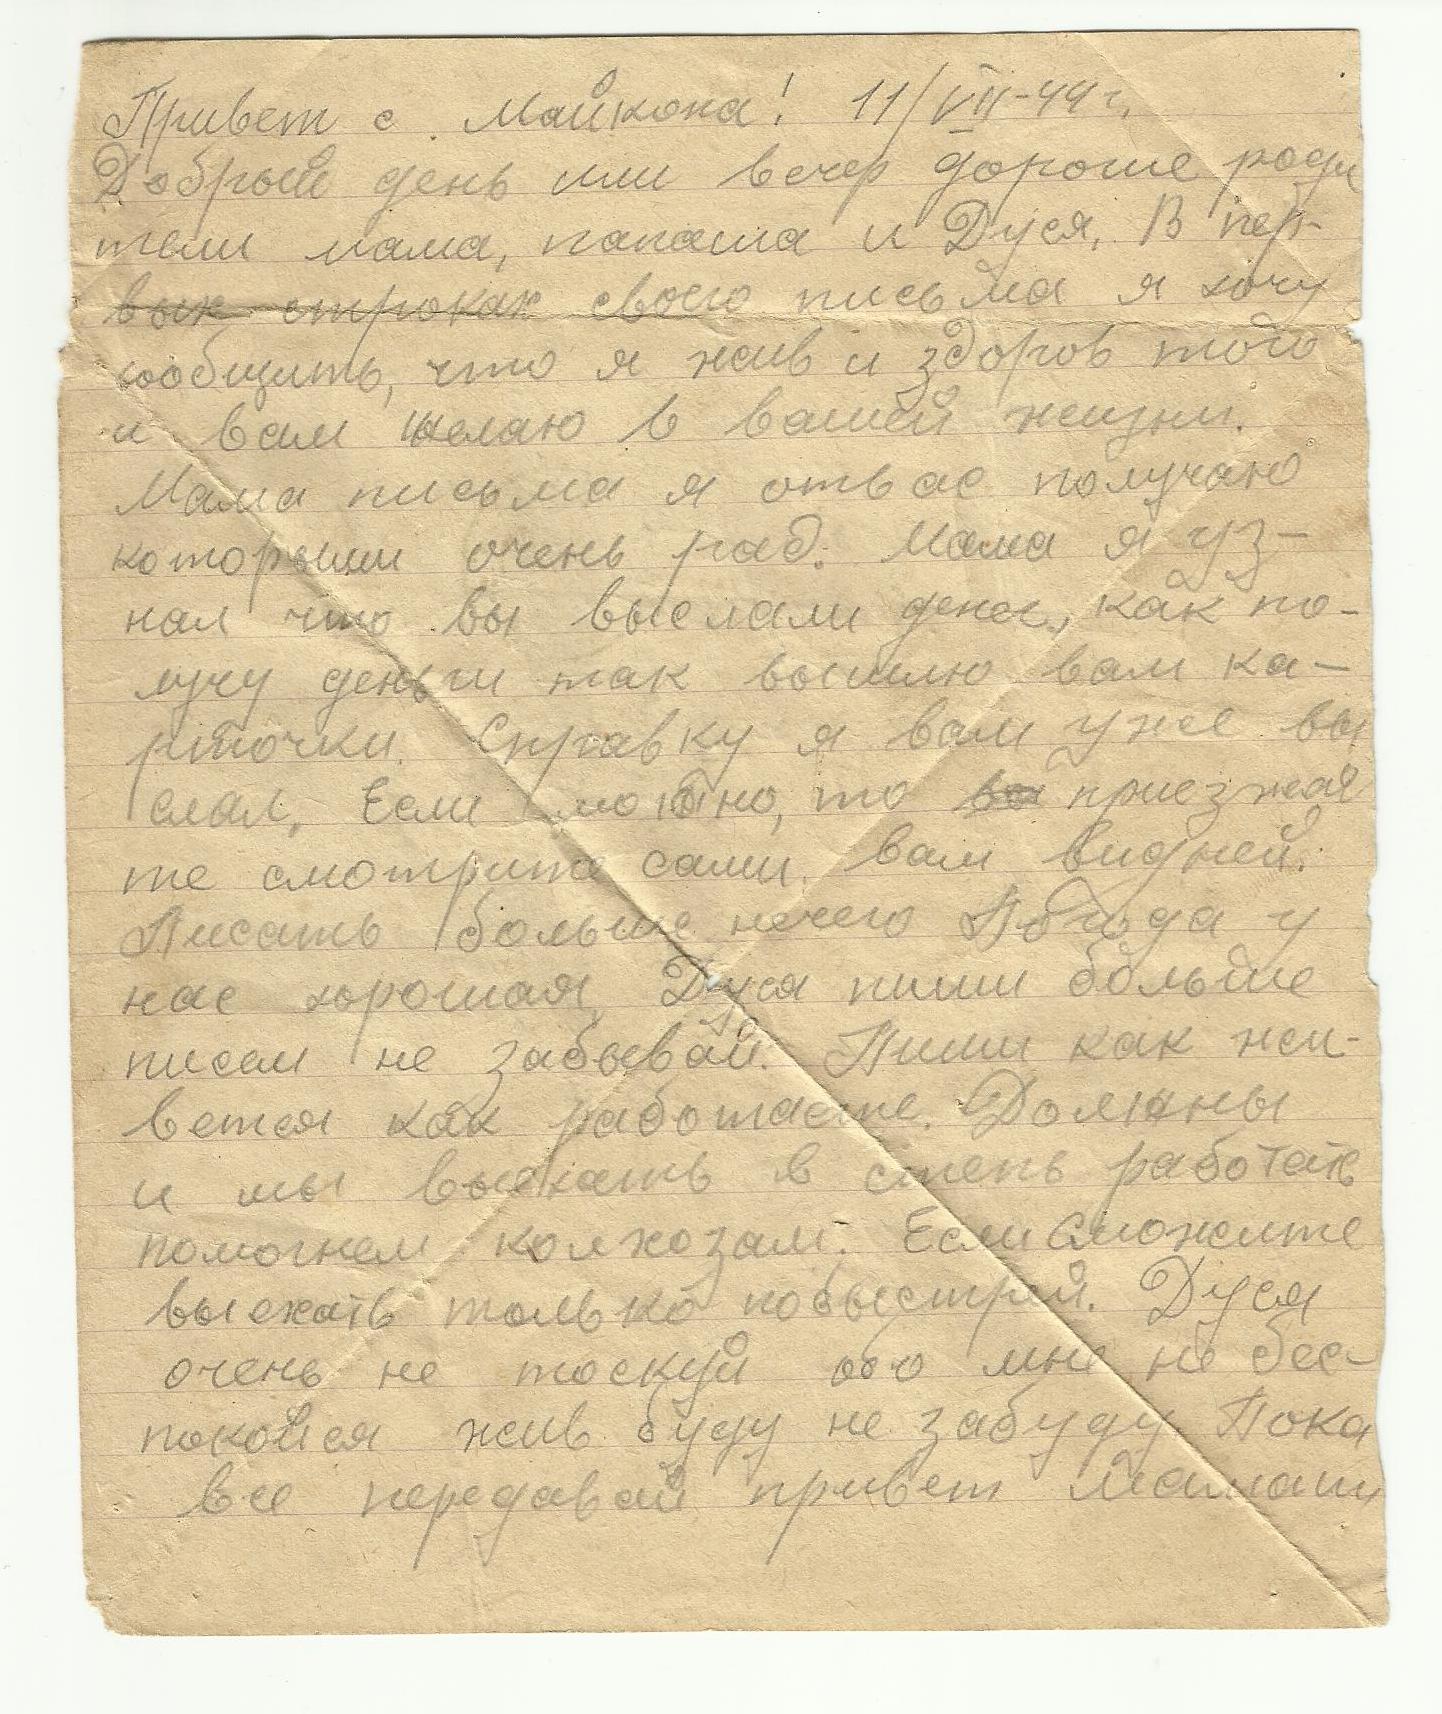 Привет с Майкопа! 11/VII-44 г.
Добрый день или вечер дорогие роди
тели мама, папаша и Дуся. В пер-
вых строках своего письма я хочу
сообщить, что я жив и здоров того
и вам желаю в вашей жизни.
Мама письма я от вас получаю
которыми очень рад. Мама я уз-
нал что вы выслали денег, как по-
лучу деньги так вышлю вам ка-
рточки. Справку я вам уже вы
слал. Если можно, то приезжай
те смотрите сами вам видней.
Писать больше нечего Погода у
нас хорошая Дуся пиши больше
писем не забывай. Пиши как жи-
вется как работаете. Должны
и мы выехать в степь работать
помогнем колхозам. Если сможите
выехать только побыстрей. Дуся
очень не тоскуй обо мне не бес-
покойся жив буду не забуду Пока
все передавай привет Мамаши